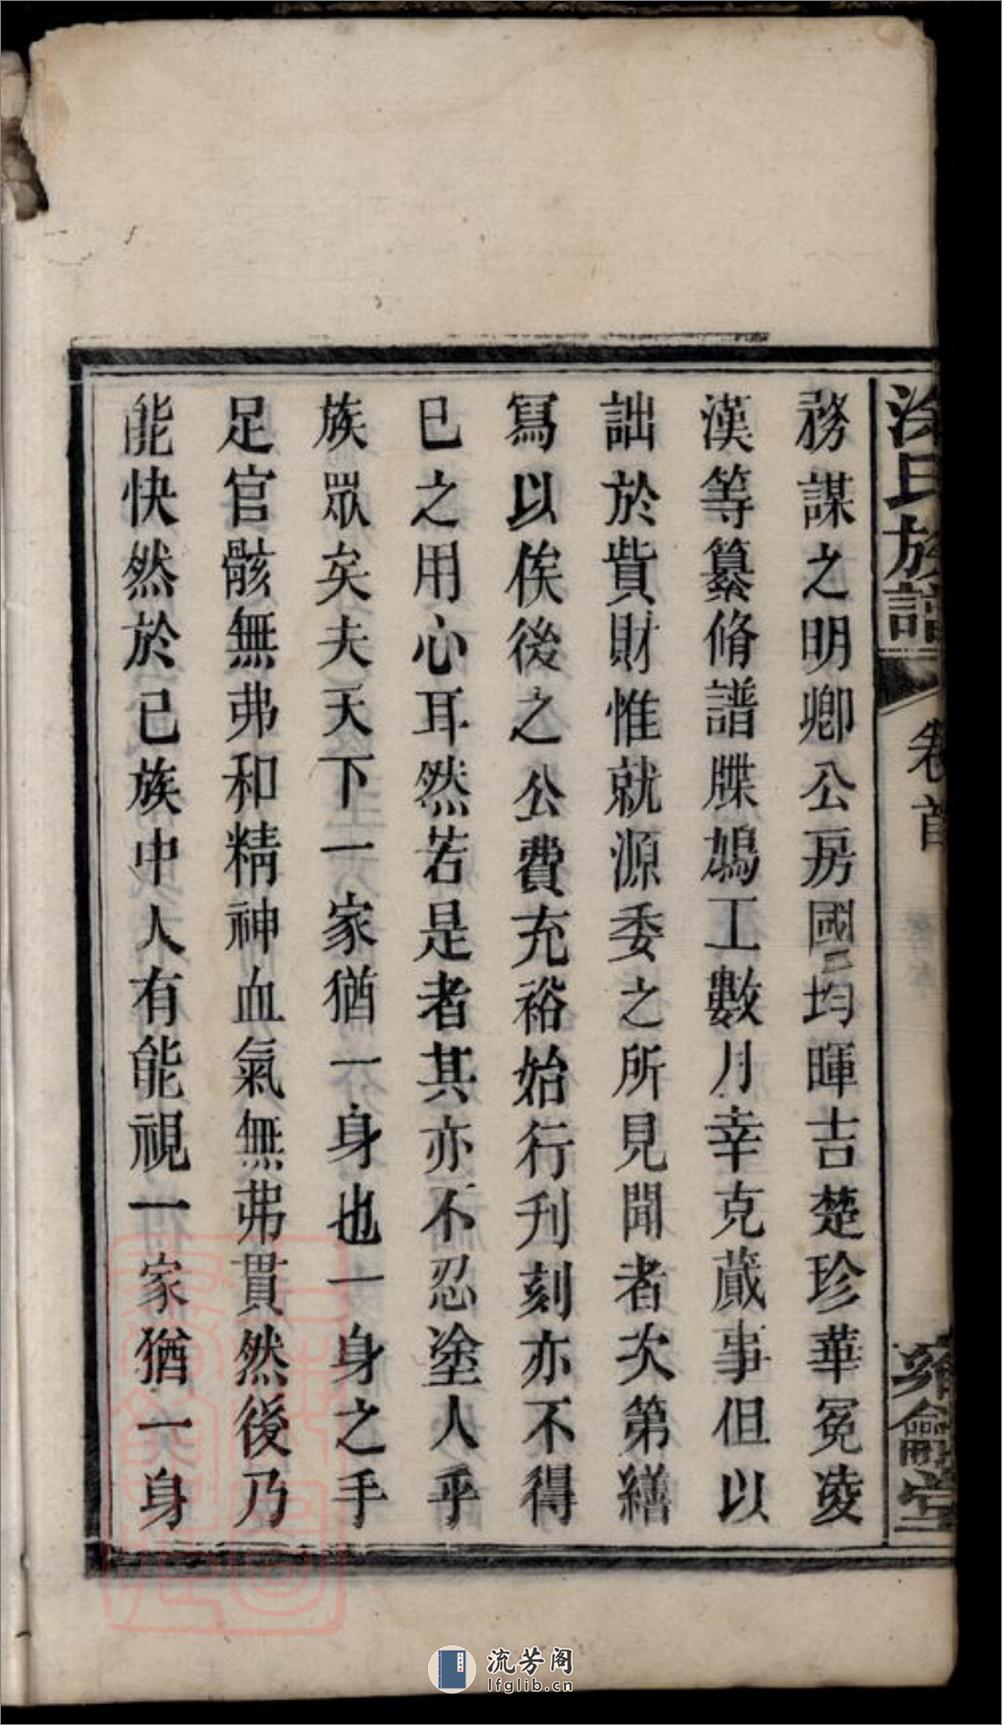 涂氏族譜
卷首
務謀之明卿公房國二均暉吉楚珍華冕凌
漢等纂脩譜牒鳩工數月幸克蕆事但以
詘於貲財惟就源委之所見聞者次第繕
寫以俟後之公費充裕始行刋刻亦不得
已之用心耳然若是者其亦不忍塗人乎
族眾矣夫天下一家猶一身也一身之手
足官骸無弗和精神血氣無弗貫然後乃
能快然於己族中人有能視一家猶一身
流芳阁
lfglib.cn